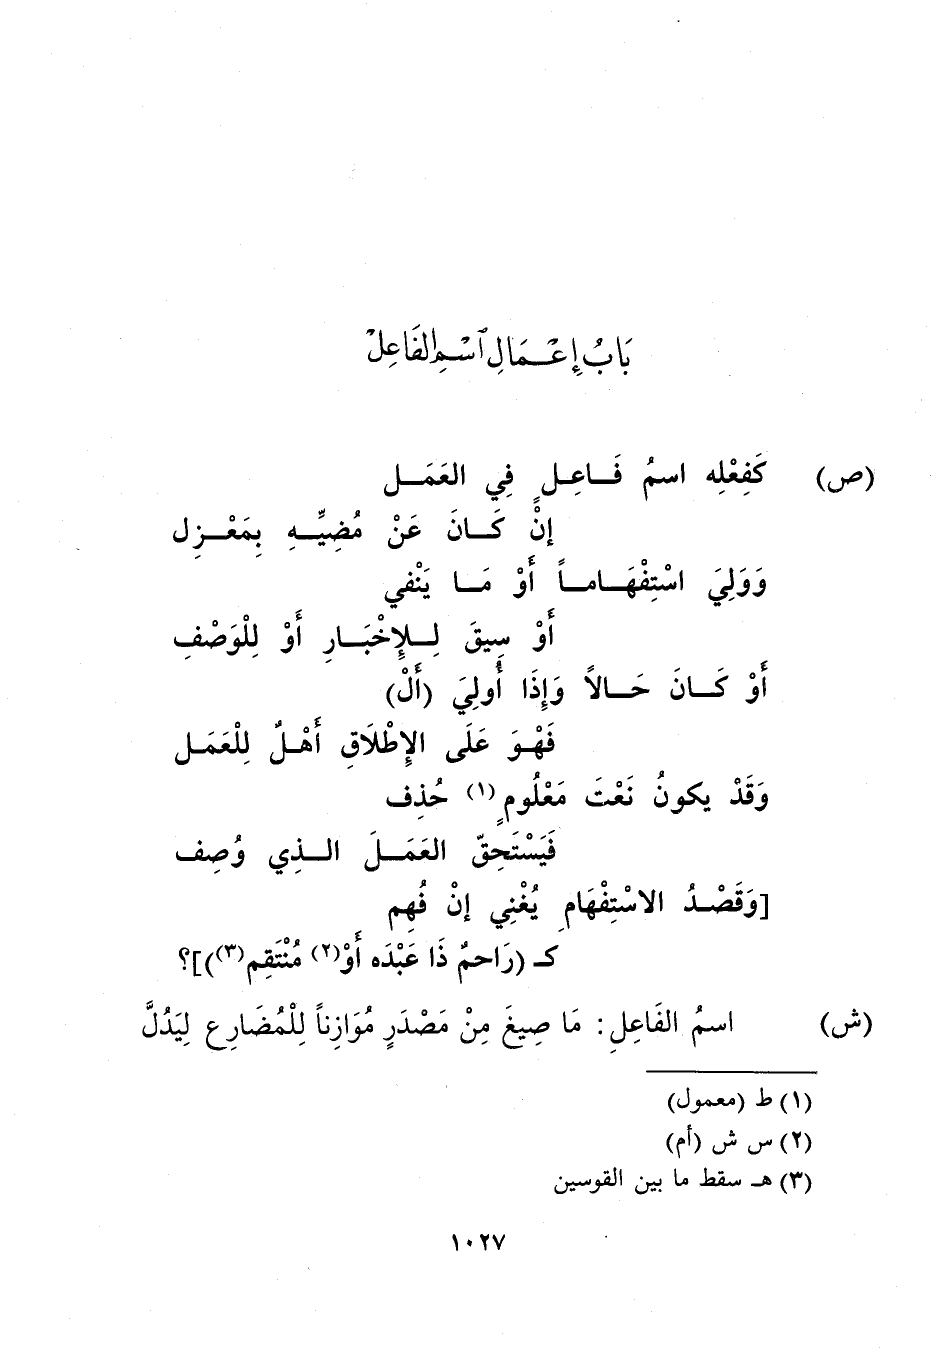 بَابُ إِعْمَالِ ٱسْمِ الفَاعِلْ
(ص) كَفِعْلِه اسمُ فَاعِلٍ فِي العَمَل
إنْ كَانَ عَنْ مُضِيِّهِ بِمَعْزِل
وَوَلِيَ اسْتِفْهَاماً أَوْ مَا يَنْفي
أَوْ سِيقَ لِلإِخْبَارِ أَوْ لِلْوَصْفِ
أَوْ كَانَ حَالاً وَإِذَا أُولِيَ (أَلْ)
فَهْوَ عَلَى الإِطْلَاقِ أَهْلٌ لِلْعَمَل
وَقَدْ يكونُ نَعْتَ مَعْلُومٍ(١) حُذِف
فَيَسْتَحِقّ العَمَلَ الذِي وُصِف
[وَقَصْدُ الاسْتِفْهَامِ يُغْنِي إنْ فُهِم
كـ (رَاحمٌ ذَا عَبْدَه أَوْ(٢) مُنْتَقِم(٣))]؟
(ش) اسمُ الفَاعِلِ: مَا صِيغَ مِنْ مَصْدَرٍ مُوَازِناً لِلْمُضَارِعِ لِيَدُلَّ
(١) ط (معمول)
(٢) س ش (أم)
(٣) هـ سقط ما بين القوسين
١٠٢٧